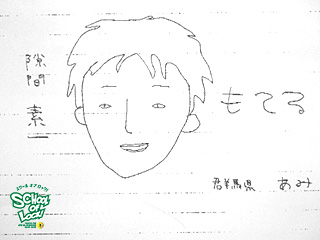 隙間 素一
もてる
群馬県 あみ
スクール オブ ロック!
SCHOOL OF LOCK!